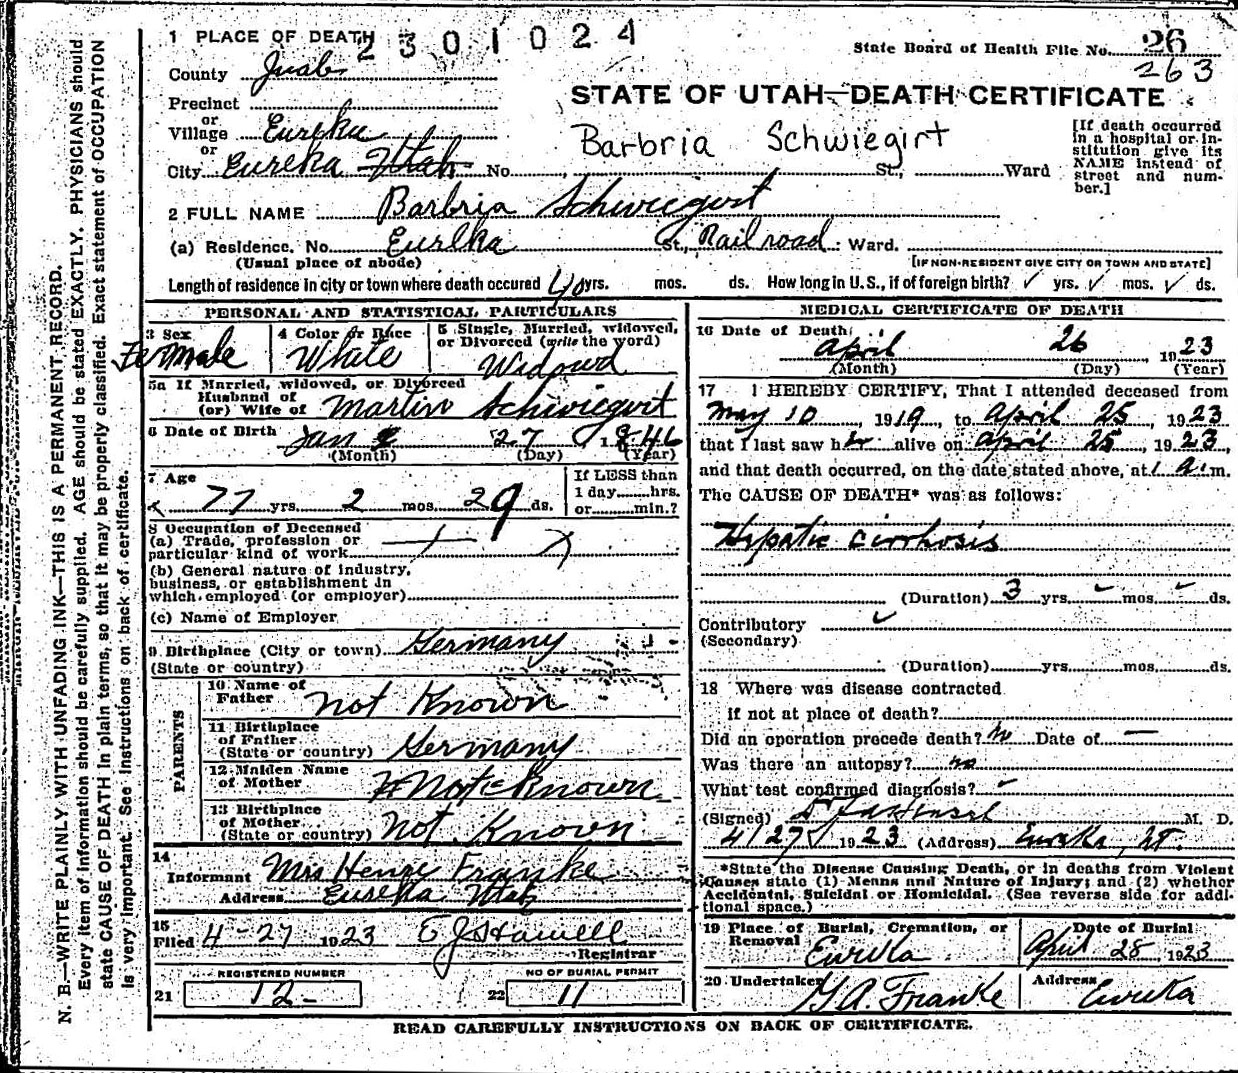 1 PLACE OF DEATH 2301024
State Board of Health File No. 26
263
County Juab
Precinct
or
Village Eureka
or
City Eureka Utah No. St., Ward
STATE OF UTAH—DEATH CERTIFICATE
Barbria Schwiegirt
[If death occurred in a hospital or in-
stitution give its
NAME instead of
street and num-
ber.]
2 FULL NAME Barbria Schwiegirt
(a) Residence. No. Eureka St., Railroad Ward.
(Usual place of abode) [IF NON-RESIDENT GIVE CITY OR TOWN AND STATE]
Length of residence in city or town where death occured 40 yrs. mos. ds. How long in U.S., if of foreign birth? ✓ yrs. ✓ mos. ✓ ds.
PERSONAL AND STATISTICAL PARTICULARS
3 Sex Fermale
4 Color or Race White
5 Single, Married, widowed,
or Divorced (write the word)
Widowd
5a If Married, widowed, or Divorced
Husband of
(or) Wife of Martin Schwiegirt
6 Date of Birth Jan 27 1846
(Month) (Day) (Year)
7 Age 77 yrs. 2 mos. 29 ds.
If LESS than
1 day hrs.
or min.?
8 Occupation of Deceased
(a) Trade, profession or
particular kind of work
(b) General nature of industry,
business, or establishment in
which employed (or employer)
(c) Name of Employer
9 Birthplace (City or town) Germany
(State or country)
PARENTS
10 Name of
Father not Known
11 Birthplace
of Father
(State or country) Germany
12 Maiden Name
of Mother Not Known
13 Birthplace
of Mother
(State or country) not Known
14
Informant Mrs Henry Franke
Address Eureka Utah
15
Filed 4-27 1923 E J Howell
Registrar
REGISTERED NUMBER
21 12-
NO OF BURIAL PERMIT
22 11
MEDICAL CERTIFICATE OF DEATH
16 Date of Death
April 26 1923
(Month) (Day) (Year)
17 I HEREBY CERTIFY, That I attended deceased from
May 10 1919, to April 25, 1923
that I last saw her alive on April 25, 1923,
and that death occurred, on the date stated above, at 1 a. m.
The CAUSE OF DEATH* was as follows:
Hepatic cirrhosis
(Duration) 3 yrs. ✓ mos. ✓ ds.
Contributory ✓
(Secondary)
(Duration) yrs. mos. ds.
18 Where was disease contracted
if not at place of death?
Did an operation precede death? no Date of —
Was there an autopsy? no
What test confirmed diagnosis? ✓
(Signed) M. D.
4/27 1923 (Address) Eureka, Ut.
*State the Disease Causing Death, or in deaths from Violent
Causes state (1) Menns and Nature of Injury; and (2) whether
Accidental, Suicidal or Homicidal. (See reverse side for addi-
tional space.)
19 Place of Burial, Cremation, or
Removal Eureka
Date of Burial
April 28, 1923
20 Undertaker G A. Franke
Address Eureka
READ CAREFULLY INSTRUCTIONS ON BACK OF CERTIFICATE.
N. B.—WRITE PLAINLY WITH UNFADING INK—THIS IS A PERMANENT RECORD.
Every item of information should be carefully supplied. AGE should be stated EXACTLY. PHYSICIANS should
state CAUSE OF DEATH in plain terms, so that it may be properly classified. Exact statement of OCCUPATION
is very important. See instructions on back of certificate.